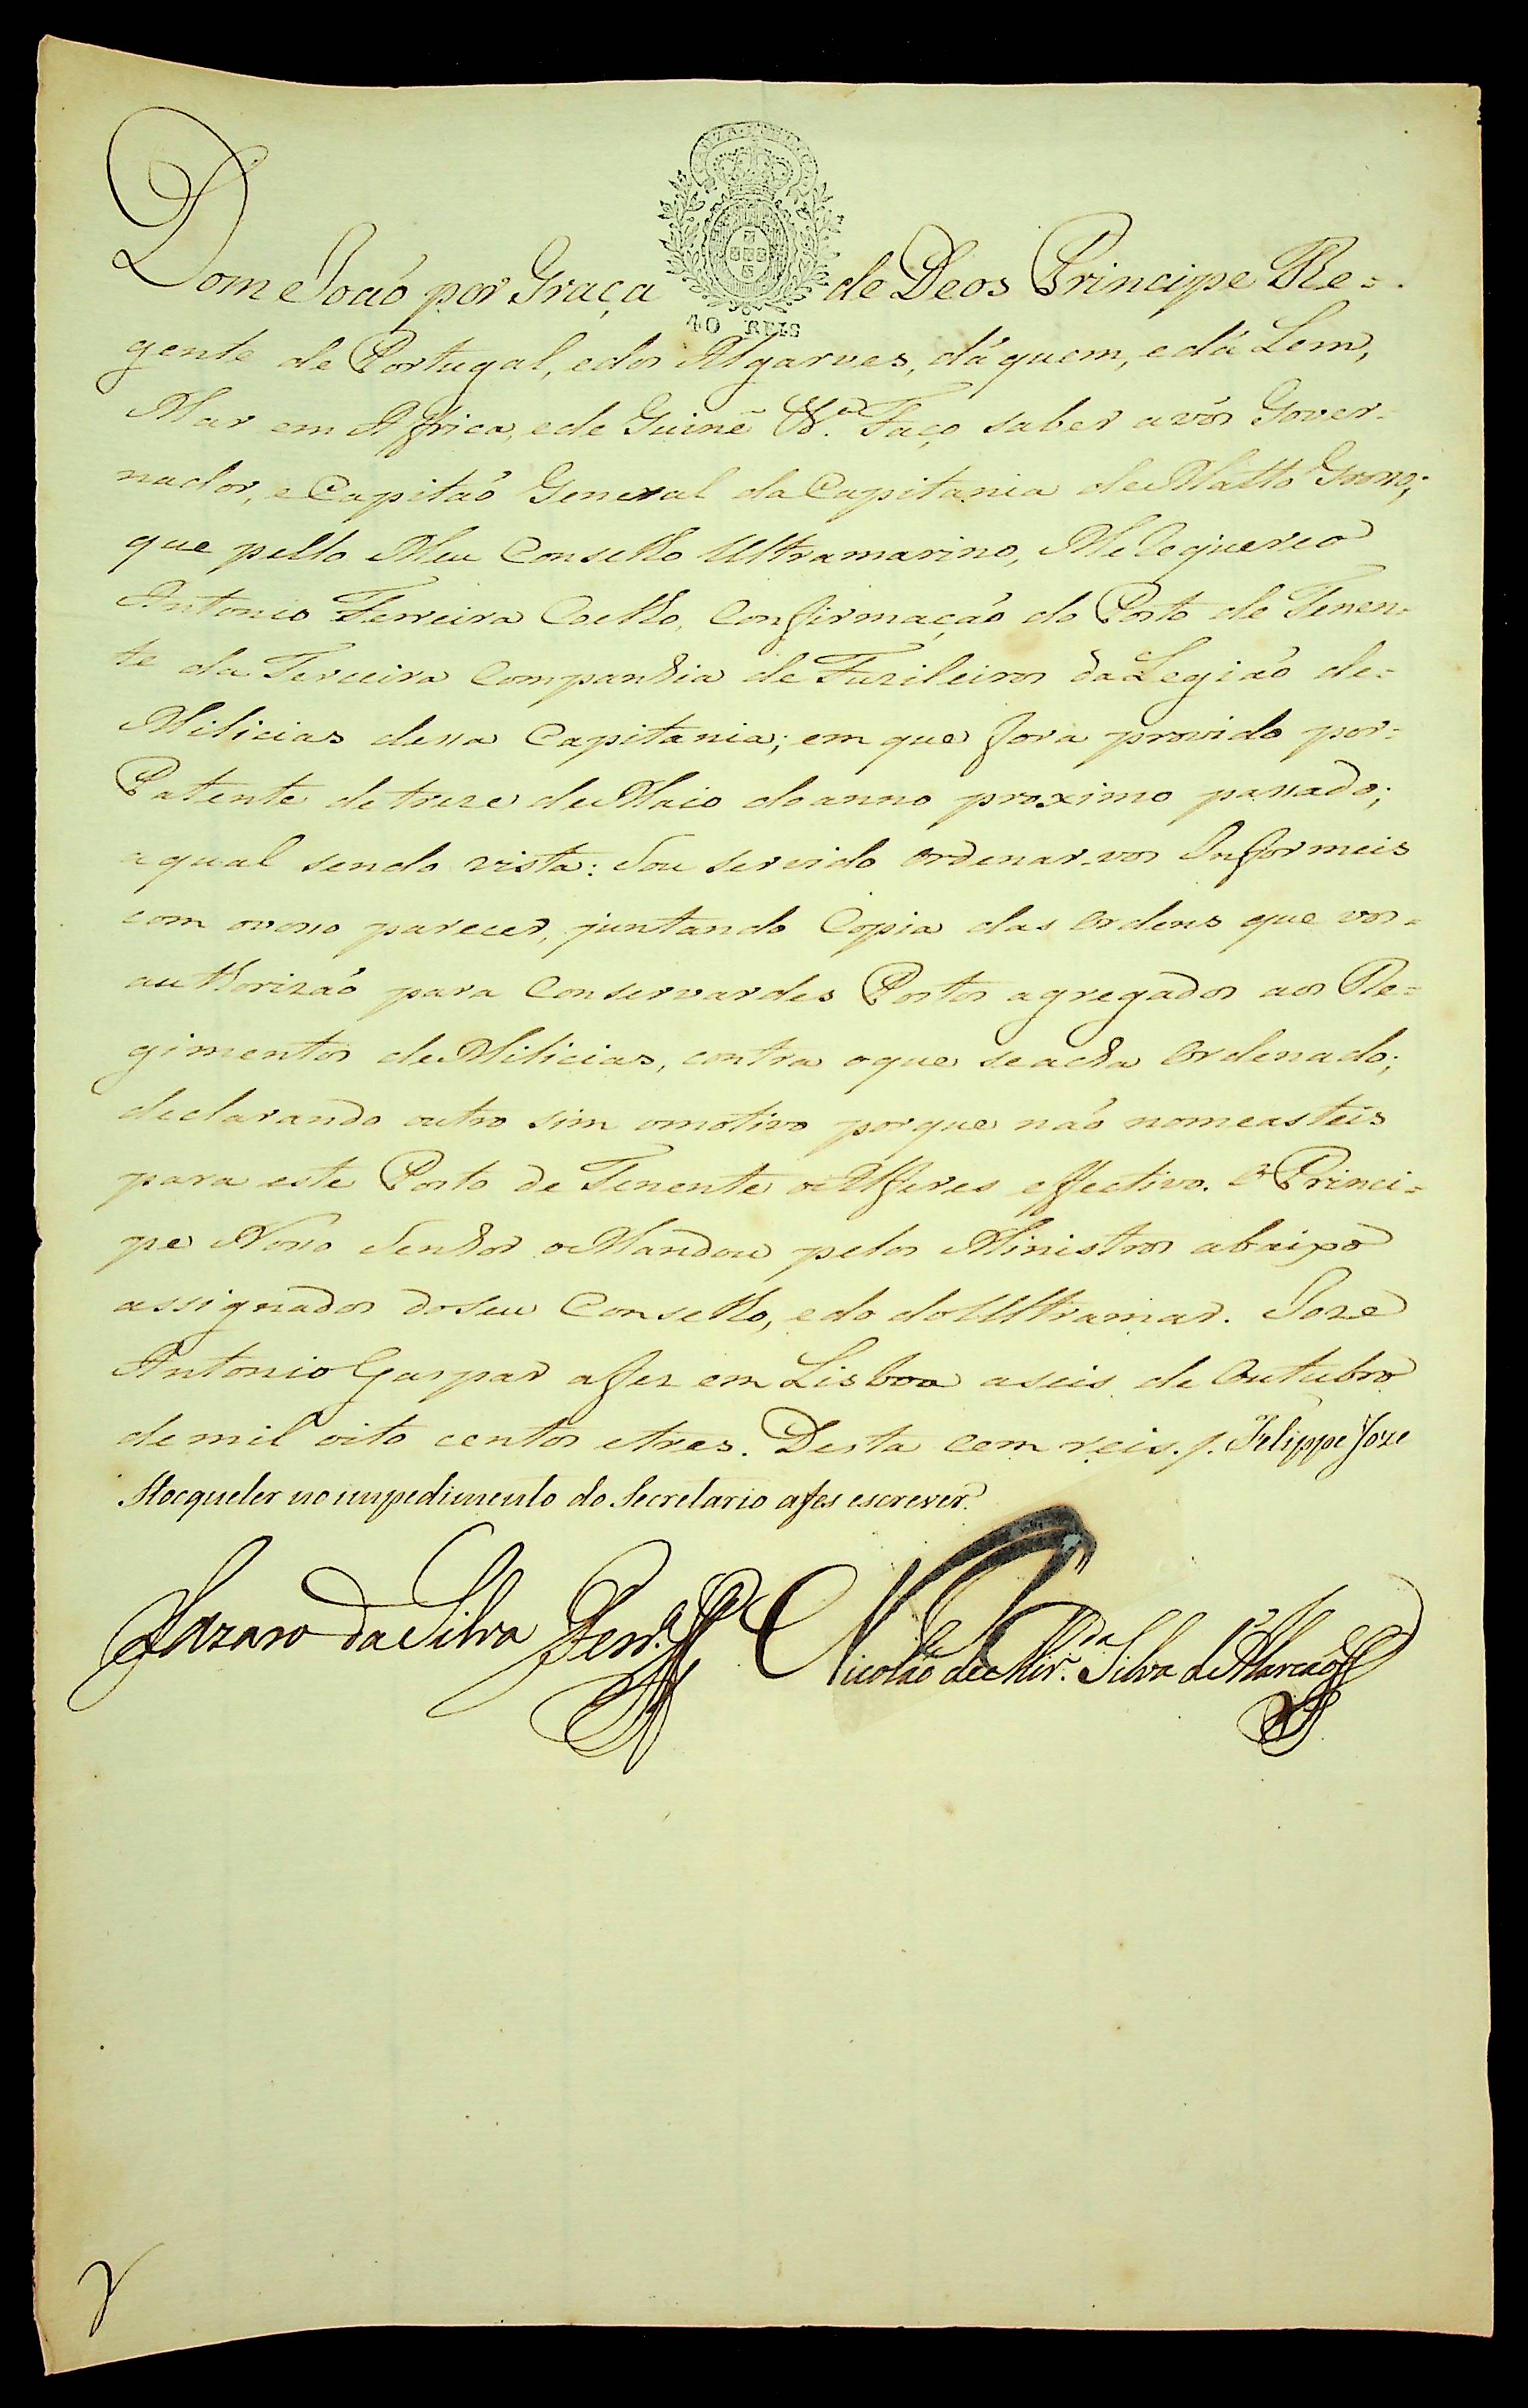 Dom João por Graça de Deos Principe Re=
40 REIS
gente de Portugal, e dos Algarves, dáquem, e dá Lem,
Mar em Affrica, e de Guiné &.ª Faço saber a vós Gover-
nador, e Capitaõ General da Capitania de Matto Grosso;
que pello Meu Conselho Ultramarino, Me Requereo
Antonio Ferreira Coelho, Confirmaçaõ do Posto de Tenen-
te da Terceira Companhia de Fuzileiros da Legiaõ de=
Milicias dessa Capitania; em que fora provido por=
Patente de treze de Maio do anno proximo passado;
a qual sendo vista: Sou servido ordenar-vos Informeis
com o vosso parecer, juntando Copia das Ordens que vos=
authorizaõ para Conservardes Postos agregados aos Re=
gimentos de Milicias, contra o que se acha Ordenado;
declarando outro sim o motivo porque naõ nomeasteis
para este Posto de Tenente o Alferes effectivo. O Princi=
pe Nosso Senhor o Mandou pelos Ministros abaixo
assignados do Seu Conselho, e do do Ultramar. Joze
Antonio Gaspar a fez em Lisboa a seis de Outubro
de mil oito centos e tres. Desta cem reis. Felippe Joze
Stocqueler no impedimento do Secretario a fes escrever.
Lazaro da Silva Ferr.ª Nicoláo de Mir.da Silva de Alarcaõ